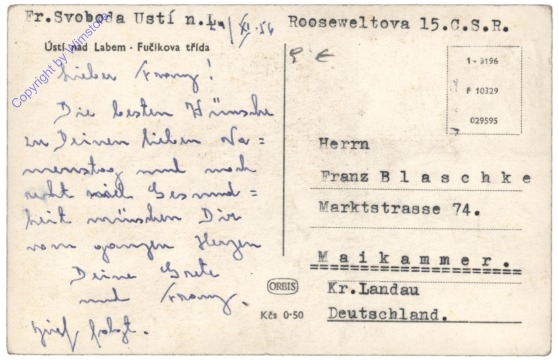 Fr.Svoboda Ustí n.L. /XI.56 Rooseweltova 15.C.S.R.
Ústí nad Labem - Fučíkova třída
Lieber Franz!
Die besten Wünsche
zu Deinen lieben Na=
menstag und noch
recht viel Gesund=
heit wünschen Dir
vom ganzen Herzen
Deine Grete
und Franz.
Brief folgt.
ORBIS
Kčs 0·50
1 - 3196
F 10329
029595
Herrn
Franz Blaschke
Marktstrasse 74.
Maikammer.
Kr.Landau
Deutschland.
Copyright by Winstorm